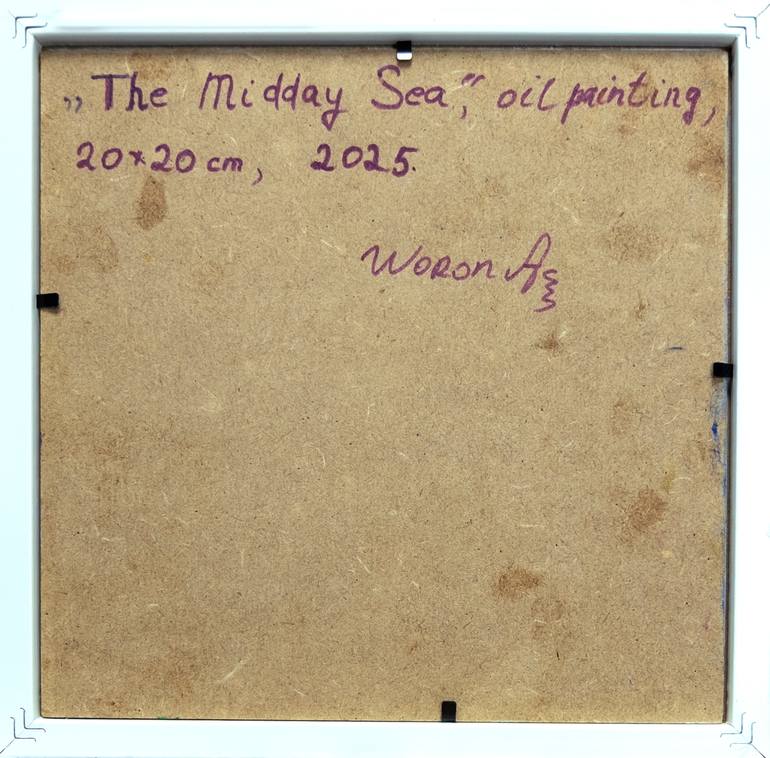 „The Midday Sea“, oil painting,
20×20 cm, 2025.
Woron A